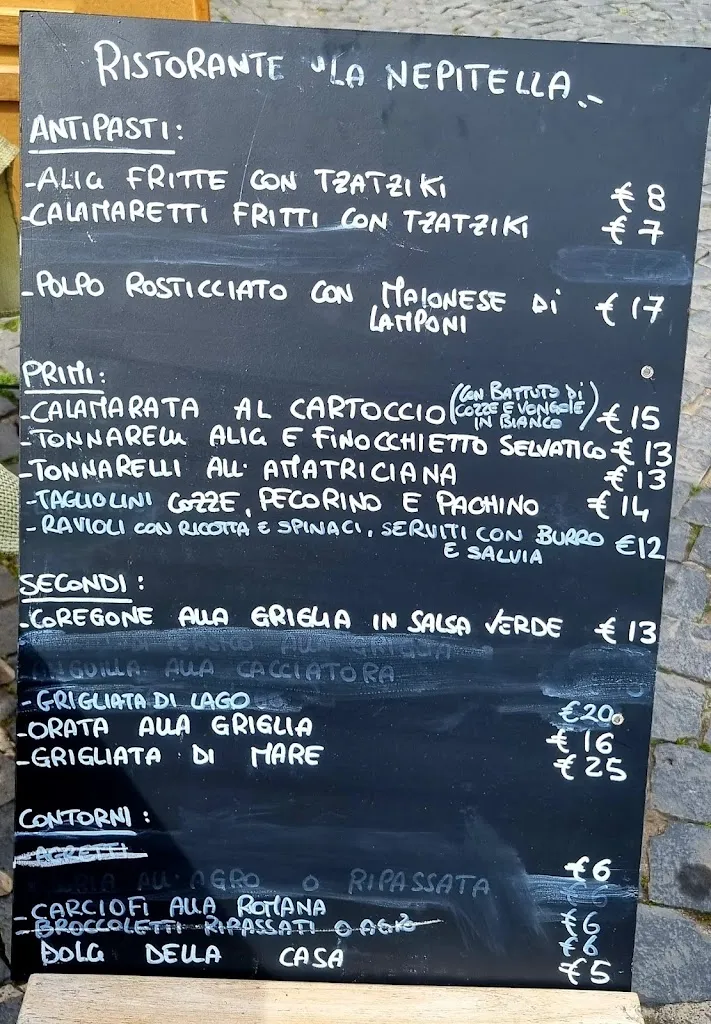 RISTORANTE "LA NEPITELLA
ANTIPASTI:
-ALICI FRITTE CON TZATZIKI €8
-CALAMARETTI FRITTI CON TZATZIKI €7
-POLPO ROSTICCIATO CON MAIONESE DI €17
LAMPONI
PRIMI:
-CALAMARATA AL CARTOCCIO (CON BATTUTO DI COZZE E VONGOLE IN BIANCO) €15
-TONNARELLI ALICI E FINOCCHIETTO SELVATICO €13
-TONNARELLI ALL'AMATRICIANA €13
-TAGLIOLINI COZZE, PECORINO E PACHINO €14
-RAVIOLI CON RICOTTA E SPINACI, SERVITI CON BURRO €12
E SALVIA
SECONDI:
-COREGONE ALLA GRIGLIA IN SALSA VERDE €13
ALLA
ANGUILLA ALLA CACCIATORA
-GRIGLIATA DI LAGO €20
-ORATA ALLA GRIGLIA €16
-GRIGLIATA DI MARE €25
CONTORNI:
-AGRETTI €6
ALL'AGRO O RIPASSATA
-CARCIOFI ALLA ROMANA €6
-BROCCOLETTI RIPASSATI O AGRO €6
DOLCI DELLA CASA €5